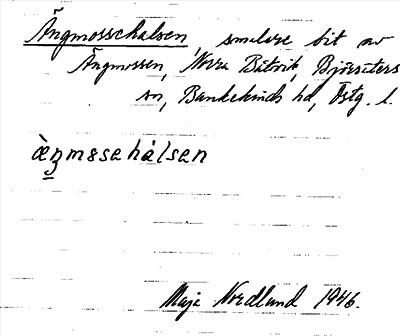 Ängmossehalsen, smalare bit av
Ängmossen, Norra Båtvik, Björsäters
sn, Bankekinds hd, Östg. l.
æ̀ŋmɷsehàlsen
Maja Nordlund 1946.